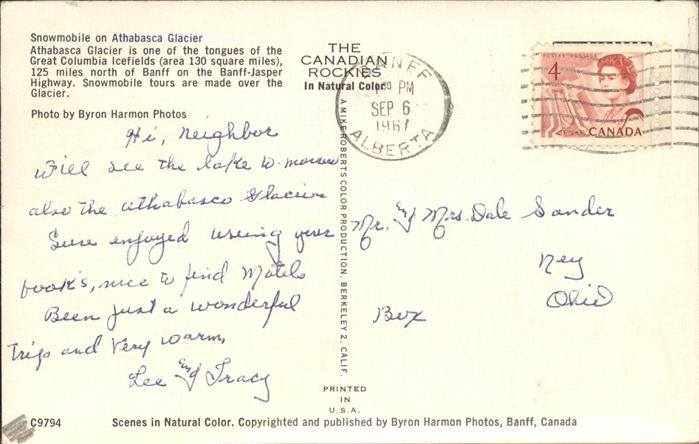 Snowmobile on Athabasca Glacier
Athabasca Glacier is one of the tongues of the
Great Columbia Icefields (area 130 square miles),
125 miles north of Banff on the Banff-Jasper
Highway. Snowmobile tours are made over the
Glacier.
Photo by Byron Harmon Photos
THE
CANADIAN
ROCKIES
In Natural Color
BANFF
PM
SEP 6
1967
ALBERTA
4
CANADA
Hi, neighbor
Will see the lake to-morrow
also the Athabasco Glacier
Sure enjoyed useing your
book's, nice to find Motels
Been just a wonderful
Trip and Very warm
Lee and Tracy
A MIKE ROBERTS COLOR PRODUCTION. BERKELEY 2, CALIF.
Mr. and Mrs. Dale Sander
Ney
Ohio
Box
PRINTED
IN
U.S.A.
C9794
Scenes in Natural Color. Copyrighted and published by Byron Harmon Photos, Banff, Canada